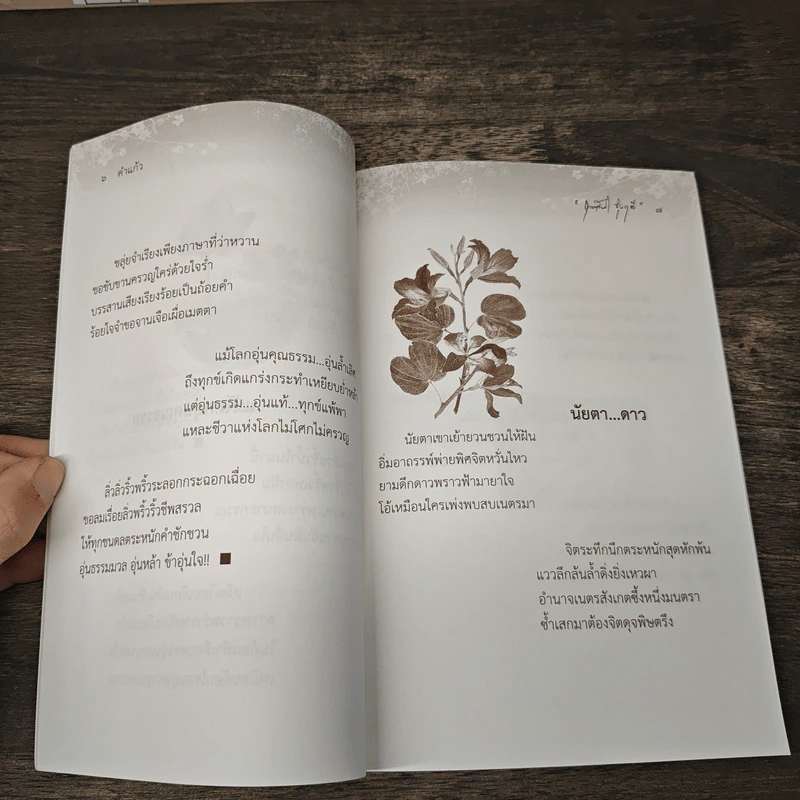 ๖ คำแก้ว
ขลุ่ยจำเรียงเพียงภาษาที่ว่าหวาน
ขอขับขานครวญใคร่ด้วยใจร่ำ
บรรสานเสียงเรียงร้อยเป็นถ้อยคำ
ร้อยใจจำขอจานเจือเผื่อเมตตา
แม้โลกอุ่นคุณธรรม...อุ่นล้ำเลิศ
ถึงทุกข์เกิดแกร่งกระทำเหยียบย่ำหล้า
แต่อุ่นธรรม...อุ่นแท้...ทุกข์แพ้พา
แหละชีวาแห่งโลกไม่โศกไม่ครวญ
ลิ่วลิ่วริ้วพริ้วระลอกกระฉอกเฉื่อย
ขอลมเรื่อยลิ่วพริ้วริ้วชีพสรวล
ให้ทุกชนดลตระหนักคำชักชวน
อุ่นธรรมมวล อุ่นหล้า ข้าอุ่นใจ!!
๗
นัยตา...ดาว
นัยตาเขาเย้ายวนชวนให้ฝัน
อิ่มอาถรรพ์พ่ายพิศจิตหวั่นไหว
ยามดึกดาวพราวฟ้ามายาใจ
โอ้เหมือนใครเพ่งพบสบเนตรมา
จิตระทึกนึกตระหนักสุดหักพ้น
แววลึกล้นล้ำดิ่งยิ่งเหวผา
อำนาจเนตรสังเกตซึ้งหนึ่งมนตรา
ซ้ำเสกมาต้องจิตดุจพิษตรึง